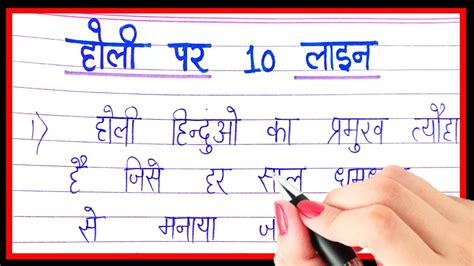 होली पर 10 लाइन
1) होली हिन्दुओ का प्रमुख त्यौहा
है जिसे हर साल
से मनाया